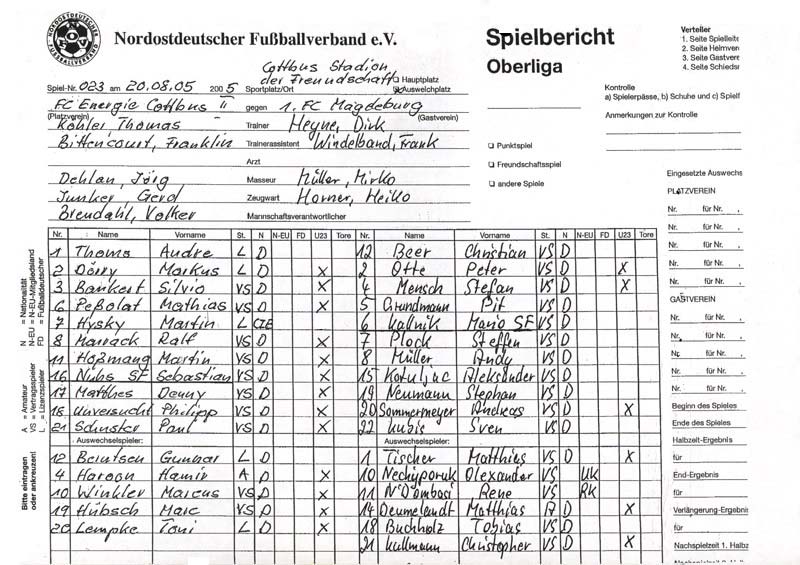 NORDOSTDEUTSCHER FUSSBALLVERBAND
Nordostdeutscher Fußballverband e.V.
Spielbericht
Oberliga
Verteiler
1. Seite Spielleite
2. Seite Heimver
3. Seite Gastver
4. Seite Schieds
Cottbus Stadion
der Freundschaft
Hauptplatz
Spiel-Nr. 023 am 20.08.05 2005 Sportplatz/Ort Ausweichplatz
Kontrolle
a) Spielerpässe, b) Schuhe und c) Spielf
Anmerkungen zur Kontrolle
FC Energie Cottbus II gegen 1. FC Magdeburg
(Platzverein) (Gastverein)
Köhler, Thomas Trainer Heyne, Dirk
Bittencourt, Franklin Trainerassistent Windelband, Frank
Arzt
Dehlan, Jörg Masseur Müller, Mirko
Junker, Gerd Zeugwart Horner, Heiko
Brendahl, Volker Mannschaftsverantwortlicher
Punktspiel
Freundschaftsspiel
andere Spiele
Eingesetzte Auswechs
PLATZVEREIN
Nr. für Nr.
Nr. für Nr.
Nr. für Nr.
Nr. für Nr.
Nr. für Nr.
GASTVEREIN
Nr. für Nr.
Nr. für Nr.
Nr. für Nr.
Nr. für Nr.
Nr. für Nr.
Beginn des Spieles
Ende des Spieles
Halbzeit-Ergebnis
für
End-Ergebnis
für
Verlängerung-Ergebnis
für
Nachspielzeit 1. Halbz
N = Nationalität
N-EU = N-EU-Mitgliedsland
FD = Fußballdeutscher
A = Amateur
VS = Vertragsspieler
L = Lizenzspieler
Bitte eintragen
oder ankreuzen!
Nr. Name Vorname St. N N-EU FD U23 Tore Nr. Name Vorname St. N N-EU FD U23 Tore
1 Thoms Andre L D 12 Beer Christian VS D
2 Dörry Markus L D X 2 Otte Peter VS D X
3 Bankert Silvio VS D X 4 Mensch Stefan VS D X
6 Peßolat Mathias VS D X 5 Grundmann Pit VS D
7 Hysky Martin L CZE 6 Kallnik Mario SF VS D
8 Ralf VS D X 7 Plock Steffen VS D
11 Martin VS D X 8 Müller Andy VS D
16 SF Sebastian VS D X 15 Kotuljac Aleksander VS D
17 Matthes Denny VS D X 19 Neumann Stephan VS D
18 Unversucht Philipp VS D X 20 Sommermeyer Andreas VS D X
21 Schuster Paul VS D X 22 Kubis Sven VS D
Auswechselspieler: Auswechselspieler:
12 Gunnar L D X 1 Tischer Matthias VS D X
4 Haroon Hamir A D X 10 Nechyporuk Olexander VS UK
10 Winkler Marcus VS D X 11 N'Dombasi Rene VS RK
19 Hübsch Marc VS D X 14 Deumelandt Matthias A D X
20 Lempke Toni L D X 18 Buchholz Tobias VS D
21 Kullmann Christopher VS D X